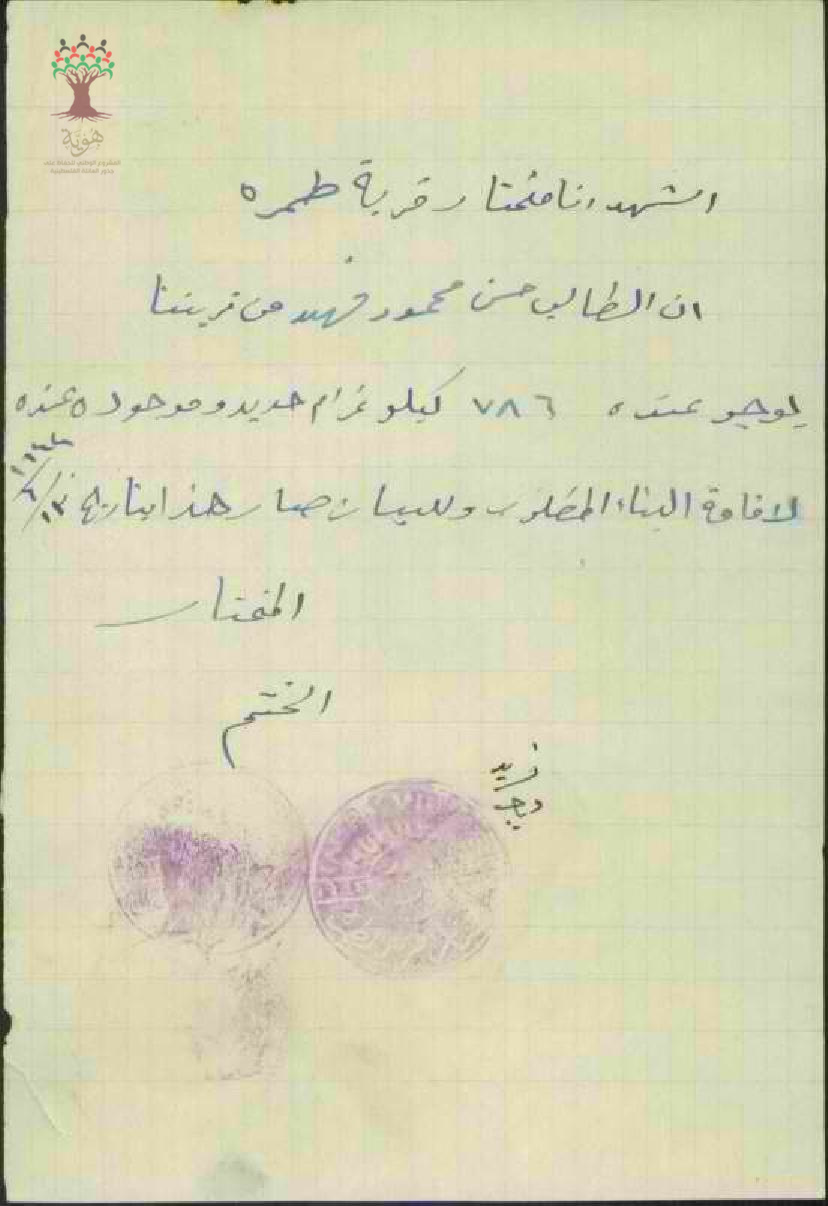 هوية
المشروع الوطني للحفاظ على
جذور العائلة الفلسطينية
اشهد انا مختار قرية طمره
ان الطالب حسن محمود فهد من قريتنا
يوجد عنده ٧٨٦ كيلو غرام حديد وموجوده عنده
لاقامة البناء المطلوب وللبيان صار هذا بتاريخ
المختار
الختم